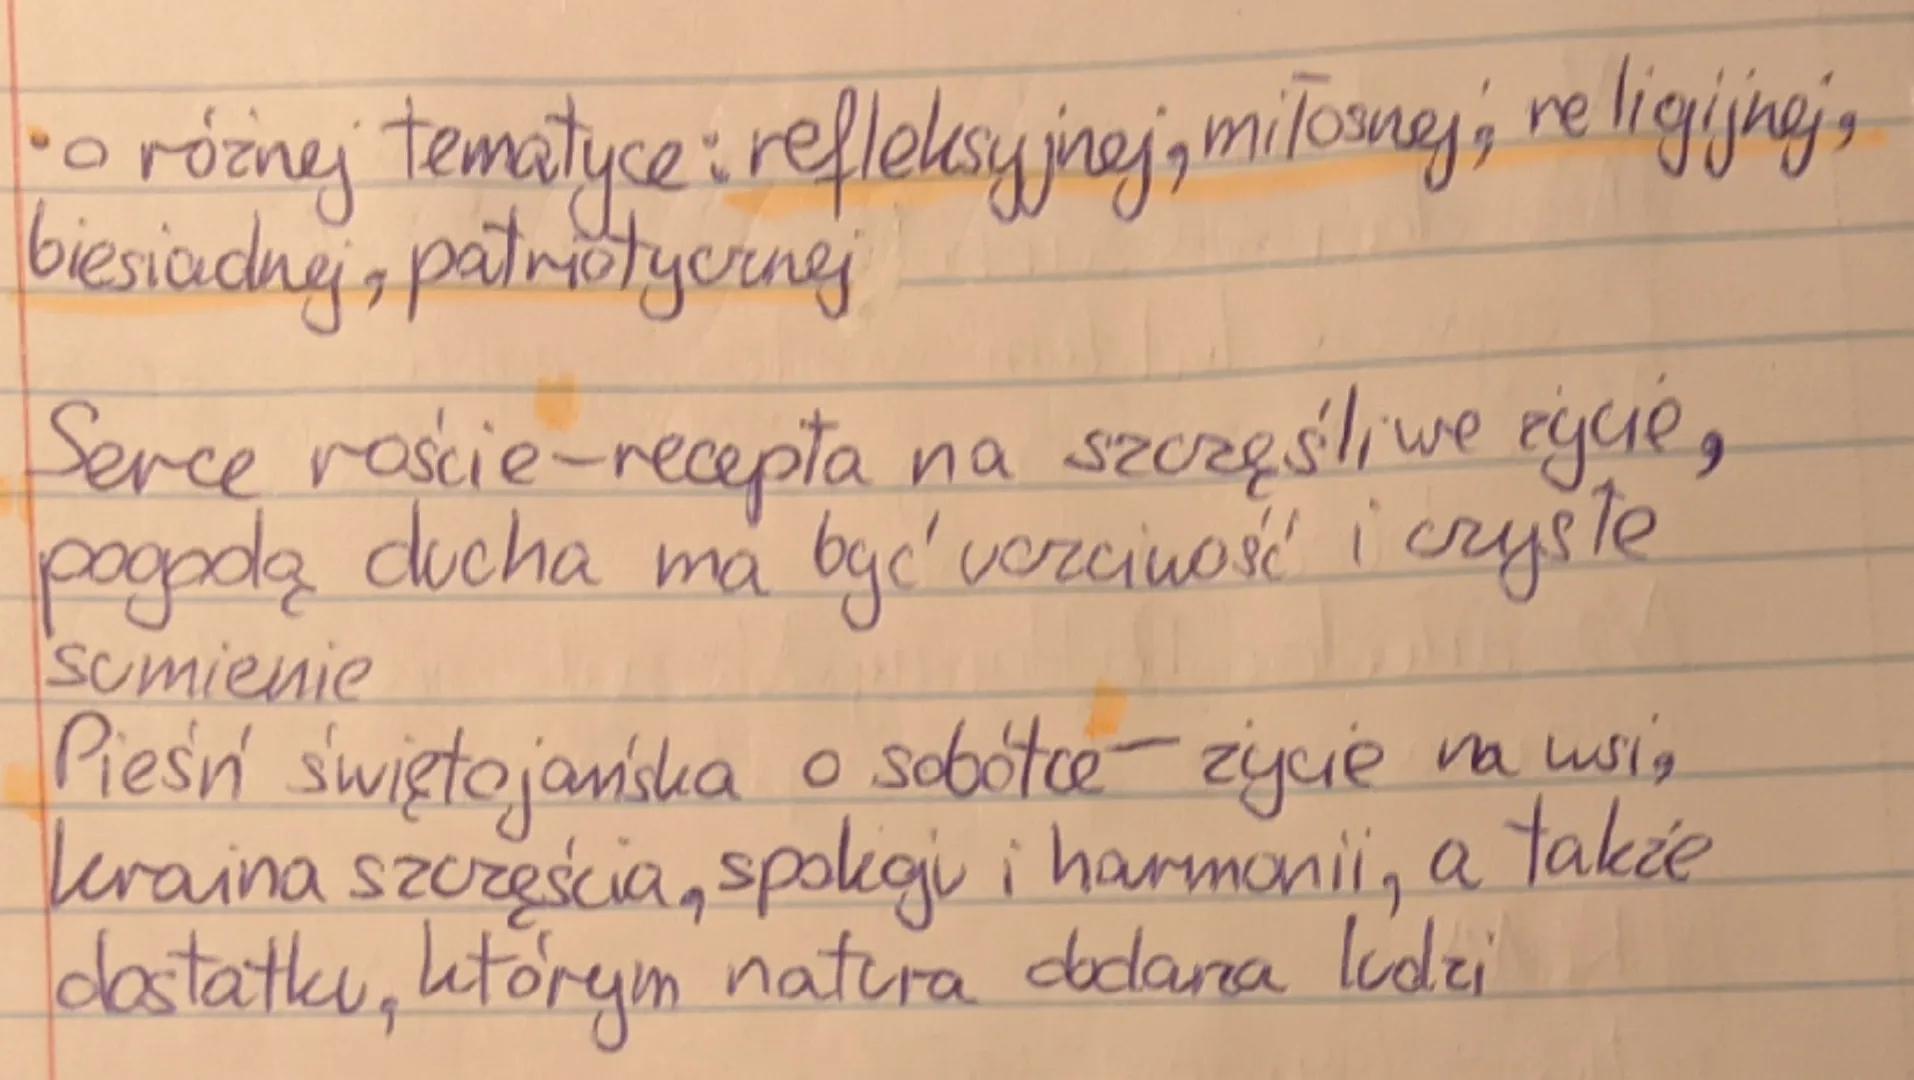 · o różnej tematyce: refleksyjnej, miłosnej, religijnej,
biesiadnej, patriotycznej
Serce roście - recepta na szczęśliwe życie,
pogodą ducha ma być uczciwość i czyste
sumienie
Pieśń świętojańska o sobótce - życie na wsi,
kraina szczęścia, spokoju i harmonii, a także
dostatku, którym natura obdarza ludzi